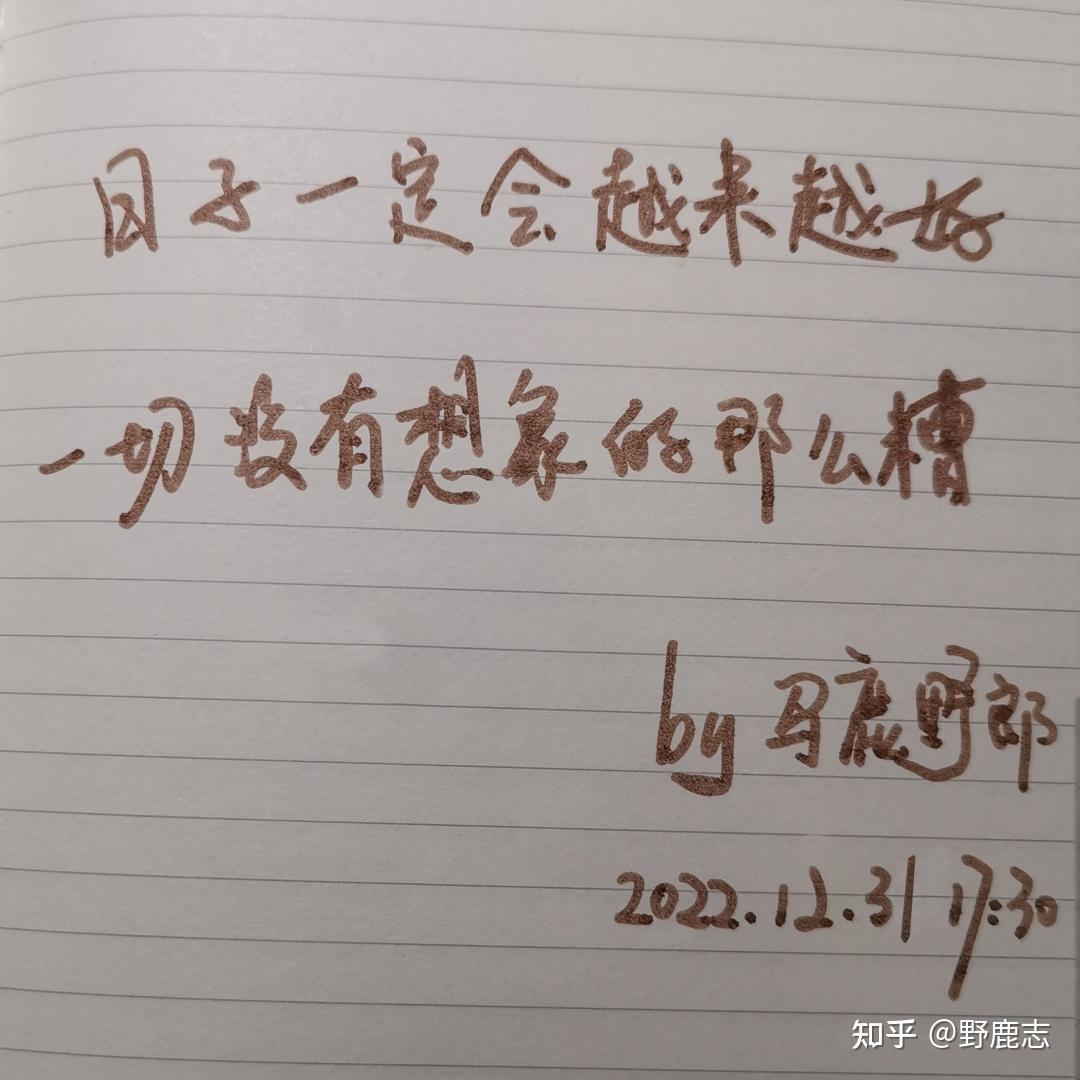 日子一定会越来越好
一切没有想象的那么糟
by 马鹿野郎
2022.12.31 17:30
知乎 @野鹿志